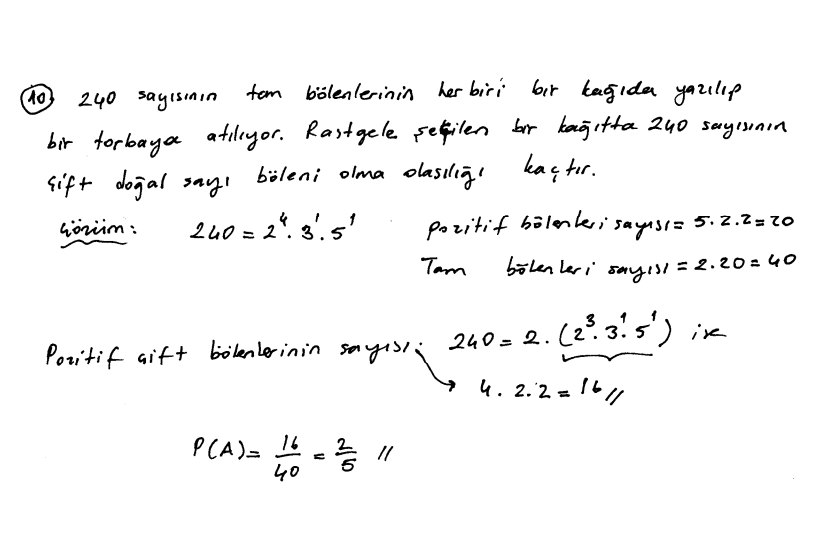 10) 240 sayısının tam bölenlerinin her biri bir kağıda yazılıp
bir torbaya atılıyor. Rastgele seçilen bir kağıtta 240 sayısının
çift doğal sayı böleni olma olasılığı kaçtır.
Çözüm: 240 = 2⁴. 3¹. 5¹ Pozitif bölenleri sayısı = 5. 2. 2 = 20
Tam bölenleri sayısı = 2. 20 = 40
Pozitif çift bölenlerinin sayısı: 240 = 2. (2³. 3¹. 5¹) ise
4. 2. 2 = 16 //
P(A) = 16/40 = 2/5 //